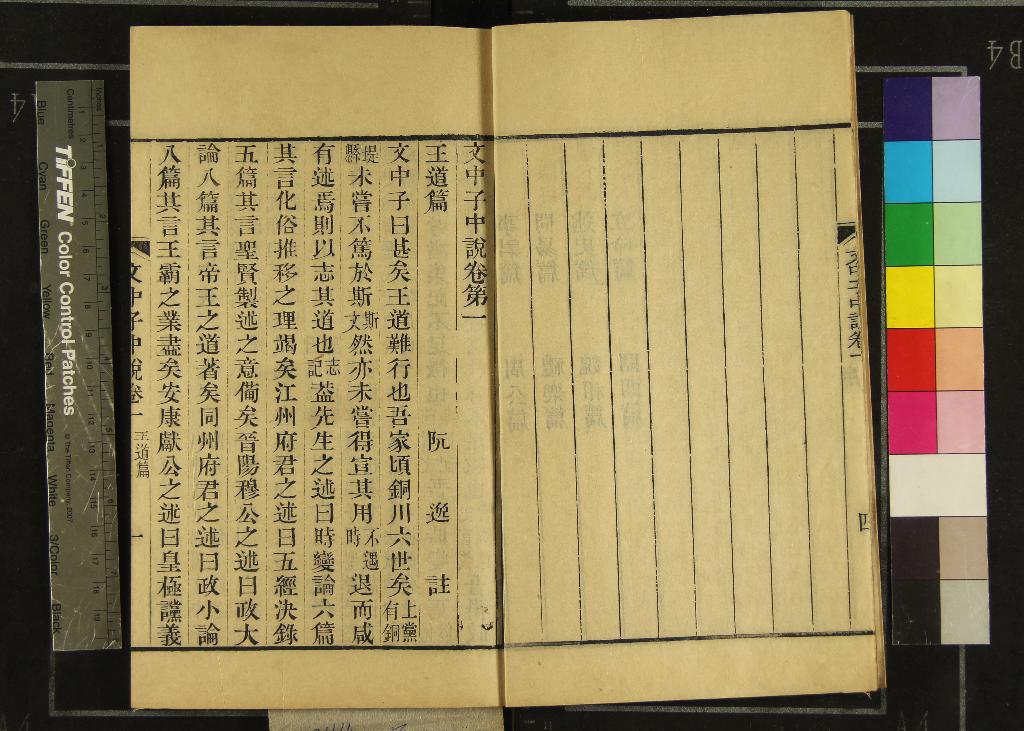 文中子中說卷第一
王道篇　阮逸註
文中子曰甚矣王道難行也吾家頃銅川六世矣上黨有銅
堤縣未嘗不篤於斯斯文然亦未嘗得宣其用不遇時退而咸
有述焉則以志其道也志記蓋先生之述曰時變論六篇
其言化俗推移之理竭矣江州府君之述曰五經決錄
五篇其言聖賢製述之意備矣晉陽穆公之述曰政大
論八篇其言帝王之道著矣同州府君之述曰政小論
八篇其言王霸之業盡矣安康獻公之述曰皇極讜義
文中子中說卷一　王道篇　一
四
Inches
Centimetres
TIFFEN Color Control Patches
© The Tiffen Company, 2007
Blue
Cyan
Green
Yellow
Red
Magenta
White
3/Color
Black
B4
A4